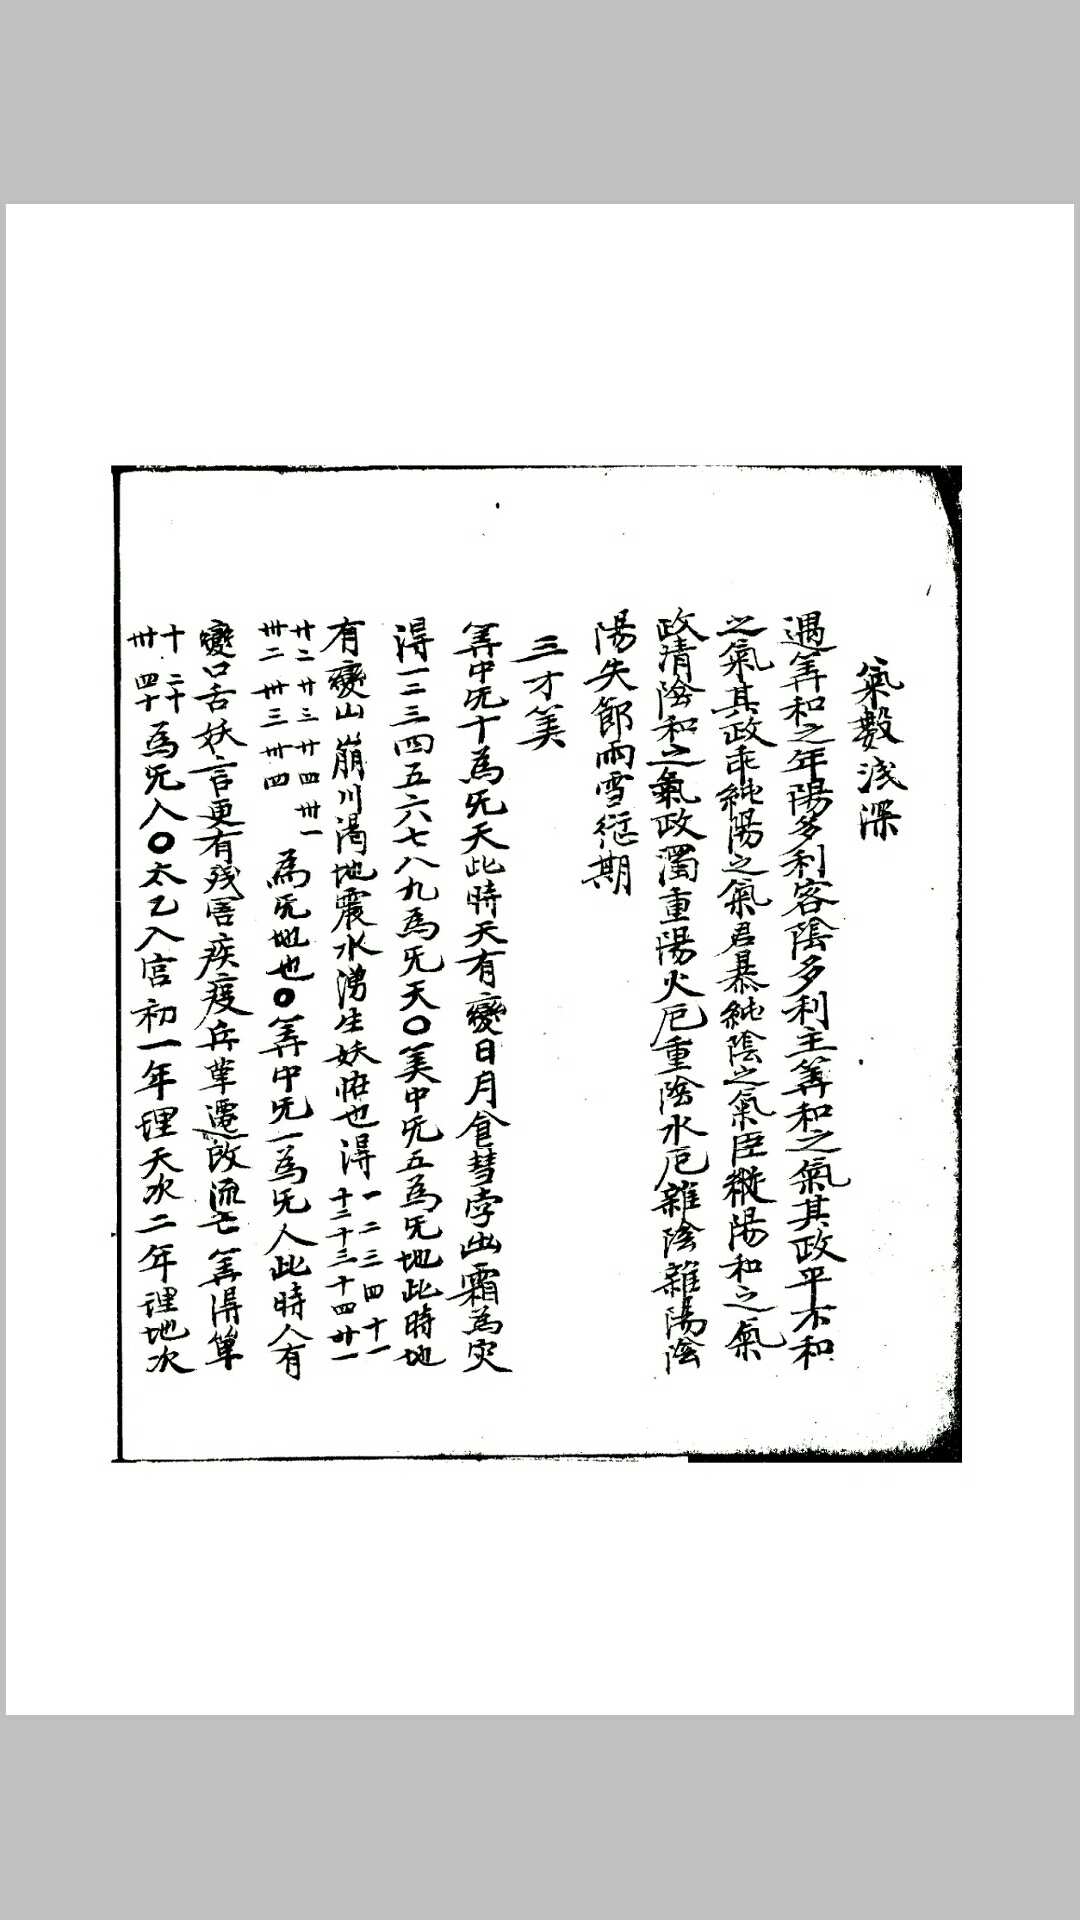 氣數浅深
遇筭和之年陽多利客陰多利主筭和之氣其政平不和
之氣其政乖純陽之氣君暴純陰之氣臣縱陽和之氣
政清陰和之氣政濁重陽火厄重陰水厄雜陰雜陽陰
陽失節雨雪愆期
三才筭
筭中旡十為旡天此時天有變日月食彗孛出霜為灾
得一二三四五六七八九為旡天〇筭中旡五為旡地此時地
有變山崩川渴地震水湧生妖怪也得一二三四十一
十二十三十四廿一
廿二廿三廿四卅一
卅二卅三卅四
為旡地也〇筭中旡一為旡人此時人有
變口舌妖言更有残害疾疫兵革遷改流亡筭得單
十二十
卅四十
為旡人〇太乙入宫初一年理天次二年理地次